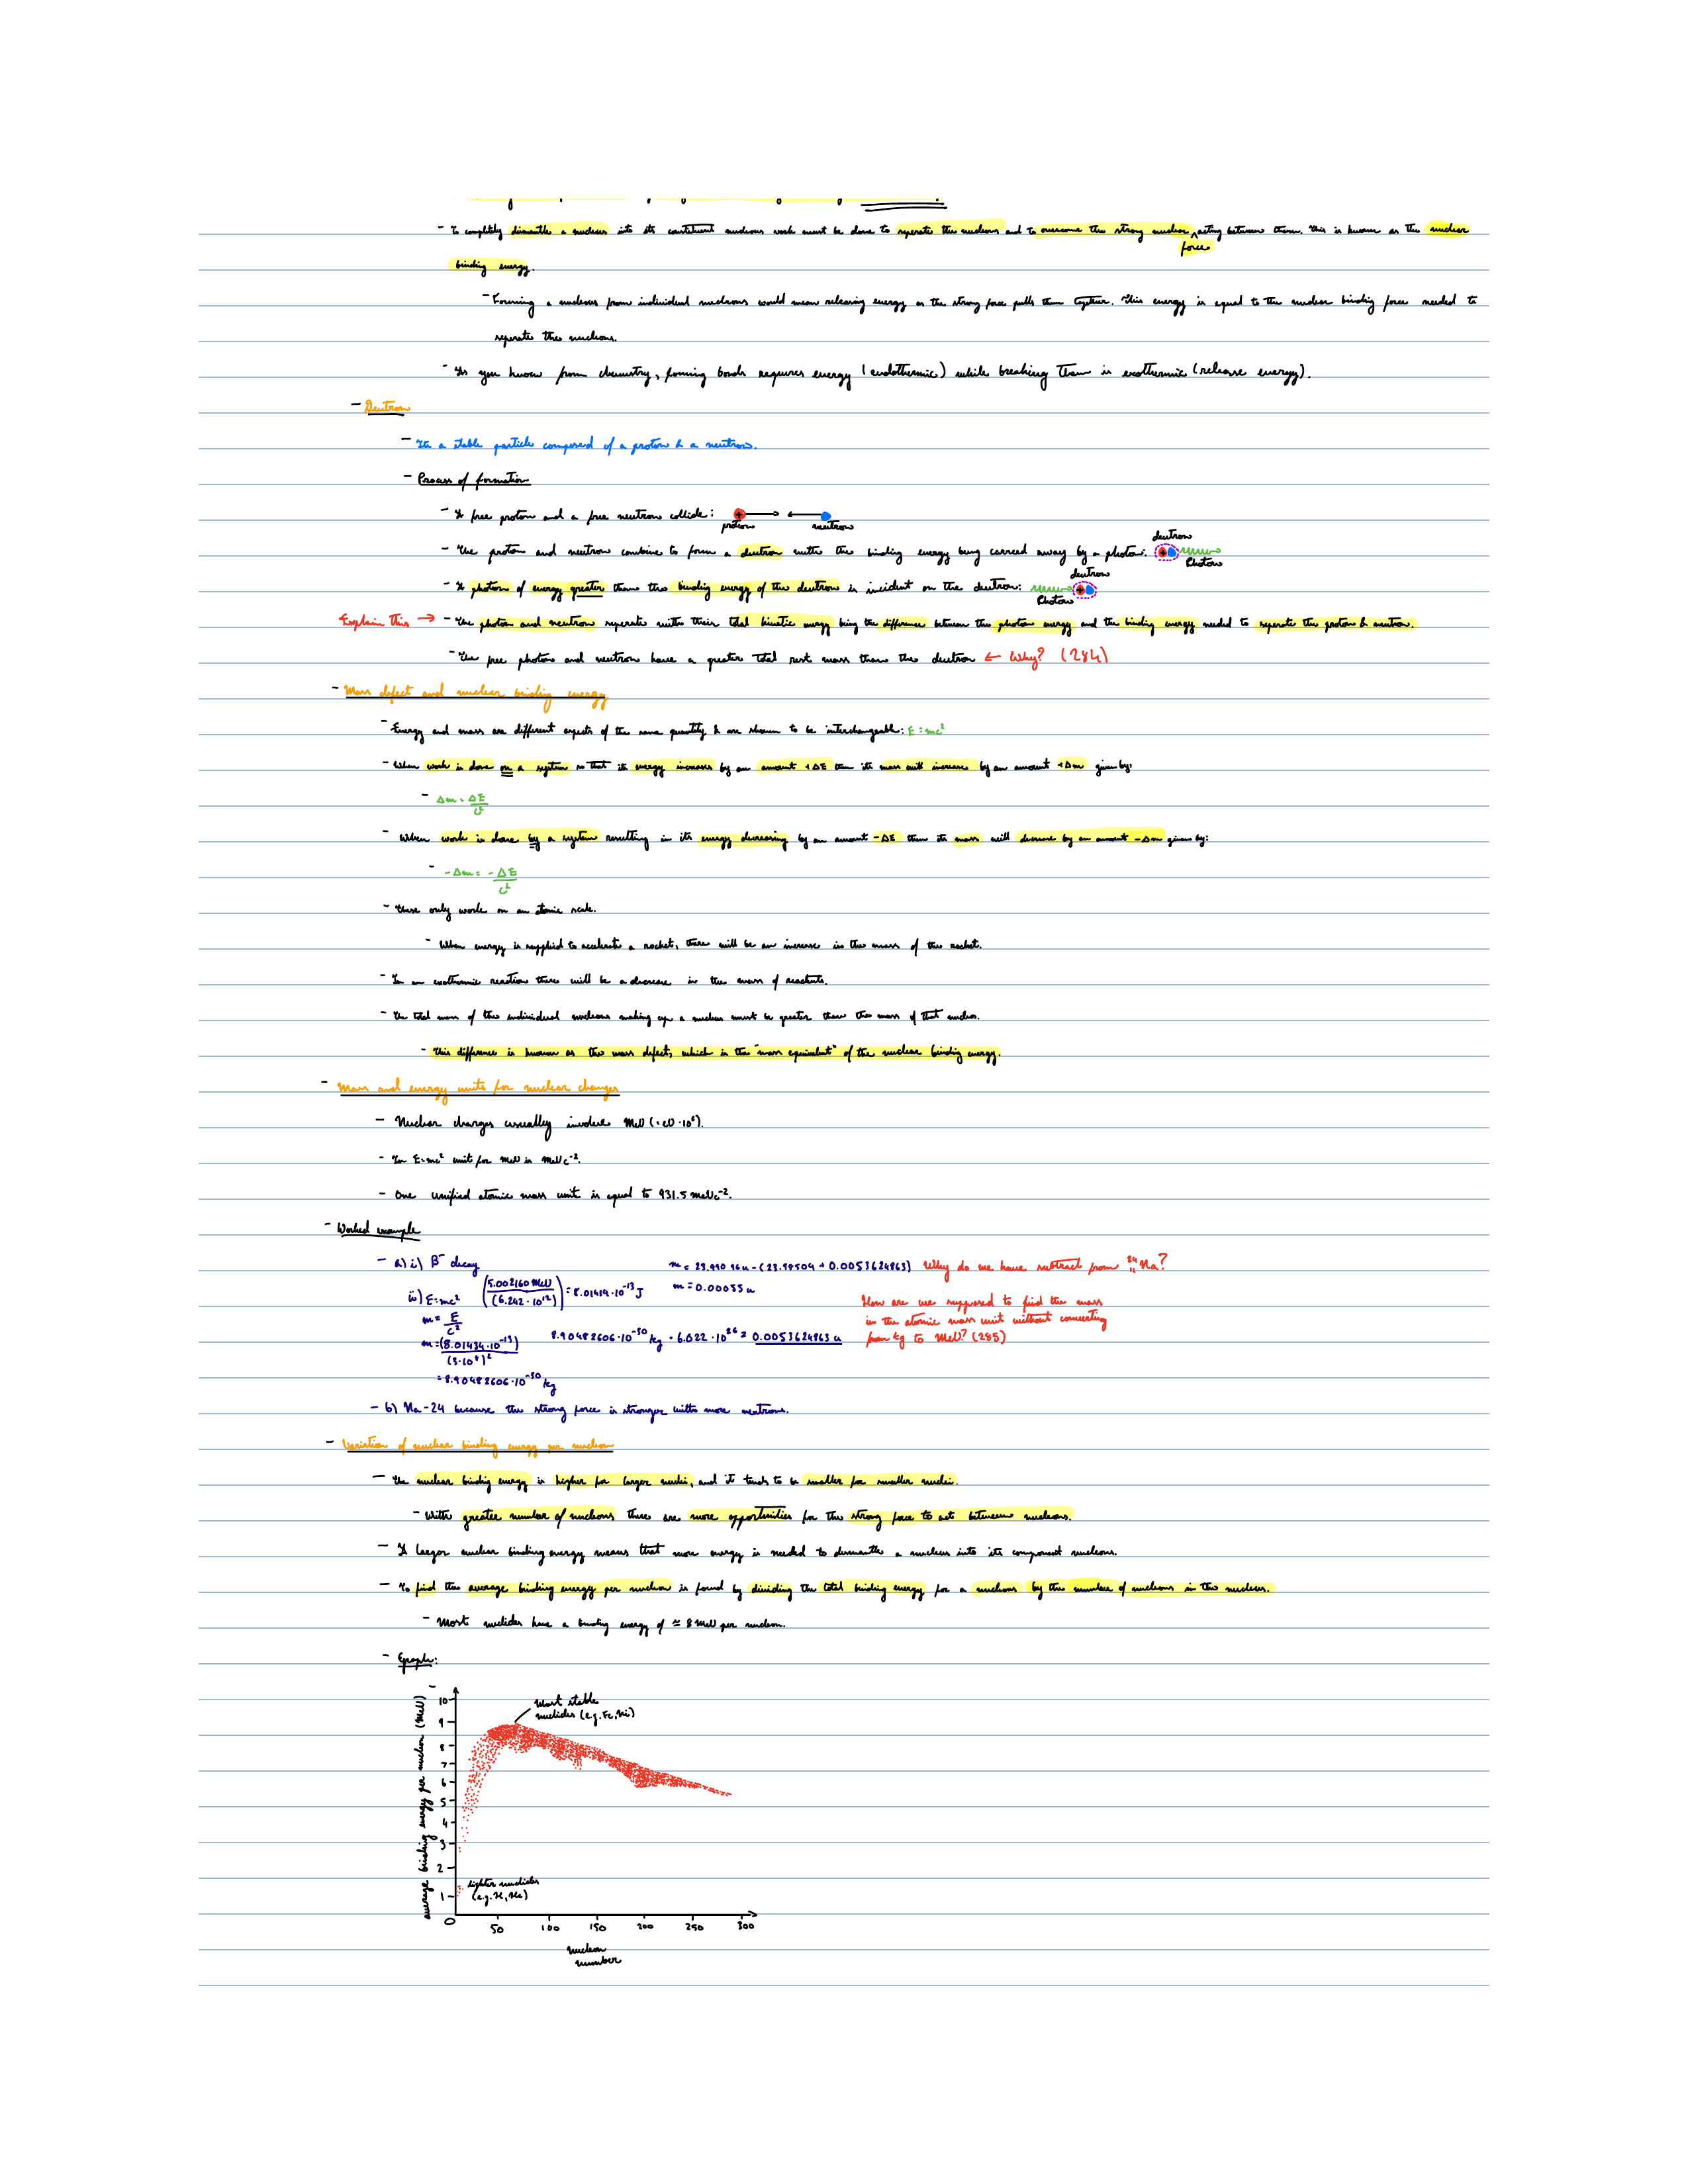 - To completly dismantle a nucleus into its constituent nucleons work must be done to seperate the nucleons and to overcome the strong nuclear ^ acting between them. This is known as the nuclear
force
binding energy.
- Forming a nucleous from individual nucleons would mean releasing energy as the strong force pulls them together. This energy is equal to the nuclear binding force needed to
seperate the nucleons.
- As you know from chemistry, forming bonds requires energy (endothermic) while breaking them is exothermic (release energy).
- Deutron
- Its a stable particle composed of a proton & a neutron.
- Process of formation
- A free proton and a free neutron collide:
proton neutron
- The proton and neutron combine to form a deutron with the binding energy being carried away by a photon:
deutron
Photon
- A photon of energy greater than the binding energy of the deutron is incident on the deutron:
deutron
Photon
Explain this → - The photon and neutron seperate with their total kinetic energy being the difference between the photon energy and the binding energy needed to seperate the proton & neutron.
- The free photon and neutron have a greater total rest mass than the deutron ← Why? (284)
- Mass defect and nuclear binding energy
- Energy and mass are different aspects of the same quantity & are shown to be interchangeable: E=mc²
- When work is done on a system so that its energy increases by an amount +ΔE then its mass will increase by an amount +Δm given by:
- Δm = ΔE/c²
- When work is done by a system resulting in its energy decreasing by an amount -ΔE then its mass will decrease by an amount -Δm given by:
- -Δm = -ΔE/c²
- These only work on an atomic scale.
- When energy is supplied to accelerate a rocket, there will be an increase in the mass of the rocket.
- In an exothermic reaction there will be a decrease in the mass of reactants.
- The total mass of the individual nucleons making up a nucleus must be greater than the mass of that nucleus.
- This difference is known as the mass defect, which is the "mass equivalent" of the nuclear binding energy.
- Mass and energy units for nuclear changes
- Nuclear charges usually involve MeV (=eV·10⁶).
- In E=mc² unit for MeV is MeVc⁻².
- One unified atomic mass unit is equal to 931.5 MeVc⁻².
- Worked example
- a) i) β⁻ decay
m = 23.99096u - (23.98504 + 0.0053624863) Why do we have subtract from ²⁴₁₁Na?
m = 0.00055u
ii) E=mc² (5.002160 MeV/(6.242·10¹²)) = 8.01414·10⁻¹³ J
m = E/c²
How are we supposed to find the mass
in the atomic mass unit without converting
from kg to MeV? (285)
m = (8.01434·10⁻¹³)/(3·10⁸)² 8.90482606·10⁻³⁰ kg · 6.022·10²⁶ = 0.0053624863 u
= 8.90482606·10⁻³⁰ kg
- b) Na-24 because the strong force is stronger with more neutrons.
- Variation of nuclear binding energy per nucleon
- The nuclear binding energy is higher for larger nuclei, and it tends to be smaller for smaller nuclei.
- With greater number of nucleons there are more opportunities for the strong force to act between nucleons.
- A larger nuclear binding energy means that more energy is needed to dismantle a nucleus into its component nucleons.
- To find the average binding energy per nucleon is found by dividing the total binding energy for a nucleous by the number of nucleons in the nucleus.
- Most nuclides have a binding energy of ≈ 8 MeV per nucleon.
- Graph:
average binding energy per nucleon (MeV)
10
9
8
7
6
5
4
3
2
1
0
Most stable
nuclides (e.g. Fe, Ni)
Lighter nuclides
(e.g. H, He)
50 100 150 200 250 300
nucleon
number